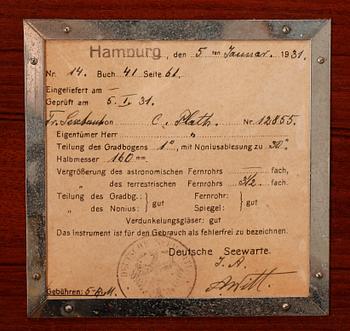 Hamburg, den 5ten Januar 1931
Nr. 14. Buch 41 Seite 61.
Eingeliefert am —
Geprüft am 5. I. 31.
Tr. Sextant von C. Plath. Nr. 12855.
Eigentümer Herr „
Teilung des Gradbogens 1°, mit Noniusablesung zu 30"
Halbmesser 160 mm
Vergrößerung des astronomischen Fernrohrs — fach,
„ des terrestrischen Fernrohrs 3½ fach.
Teilung des Gradbg: } gut Fernrohr: } gut
„ des Nonius: Spiegel:
Verdunkelungsgläser: gut
Das Instrument ist für den Gebrauch als fehlerfrei zu bezeichnen.
Deutsche Seewarte.
I. A.
Gebühren: 5 R.M.